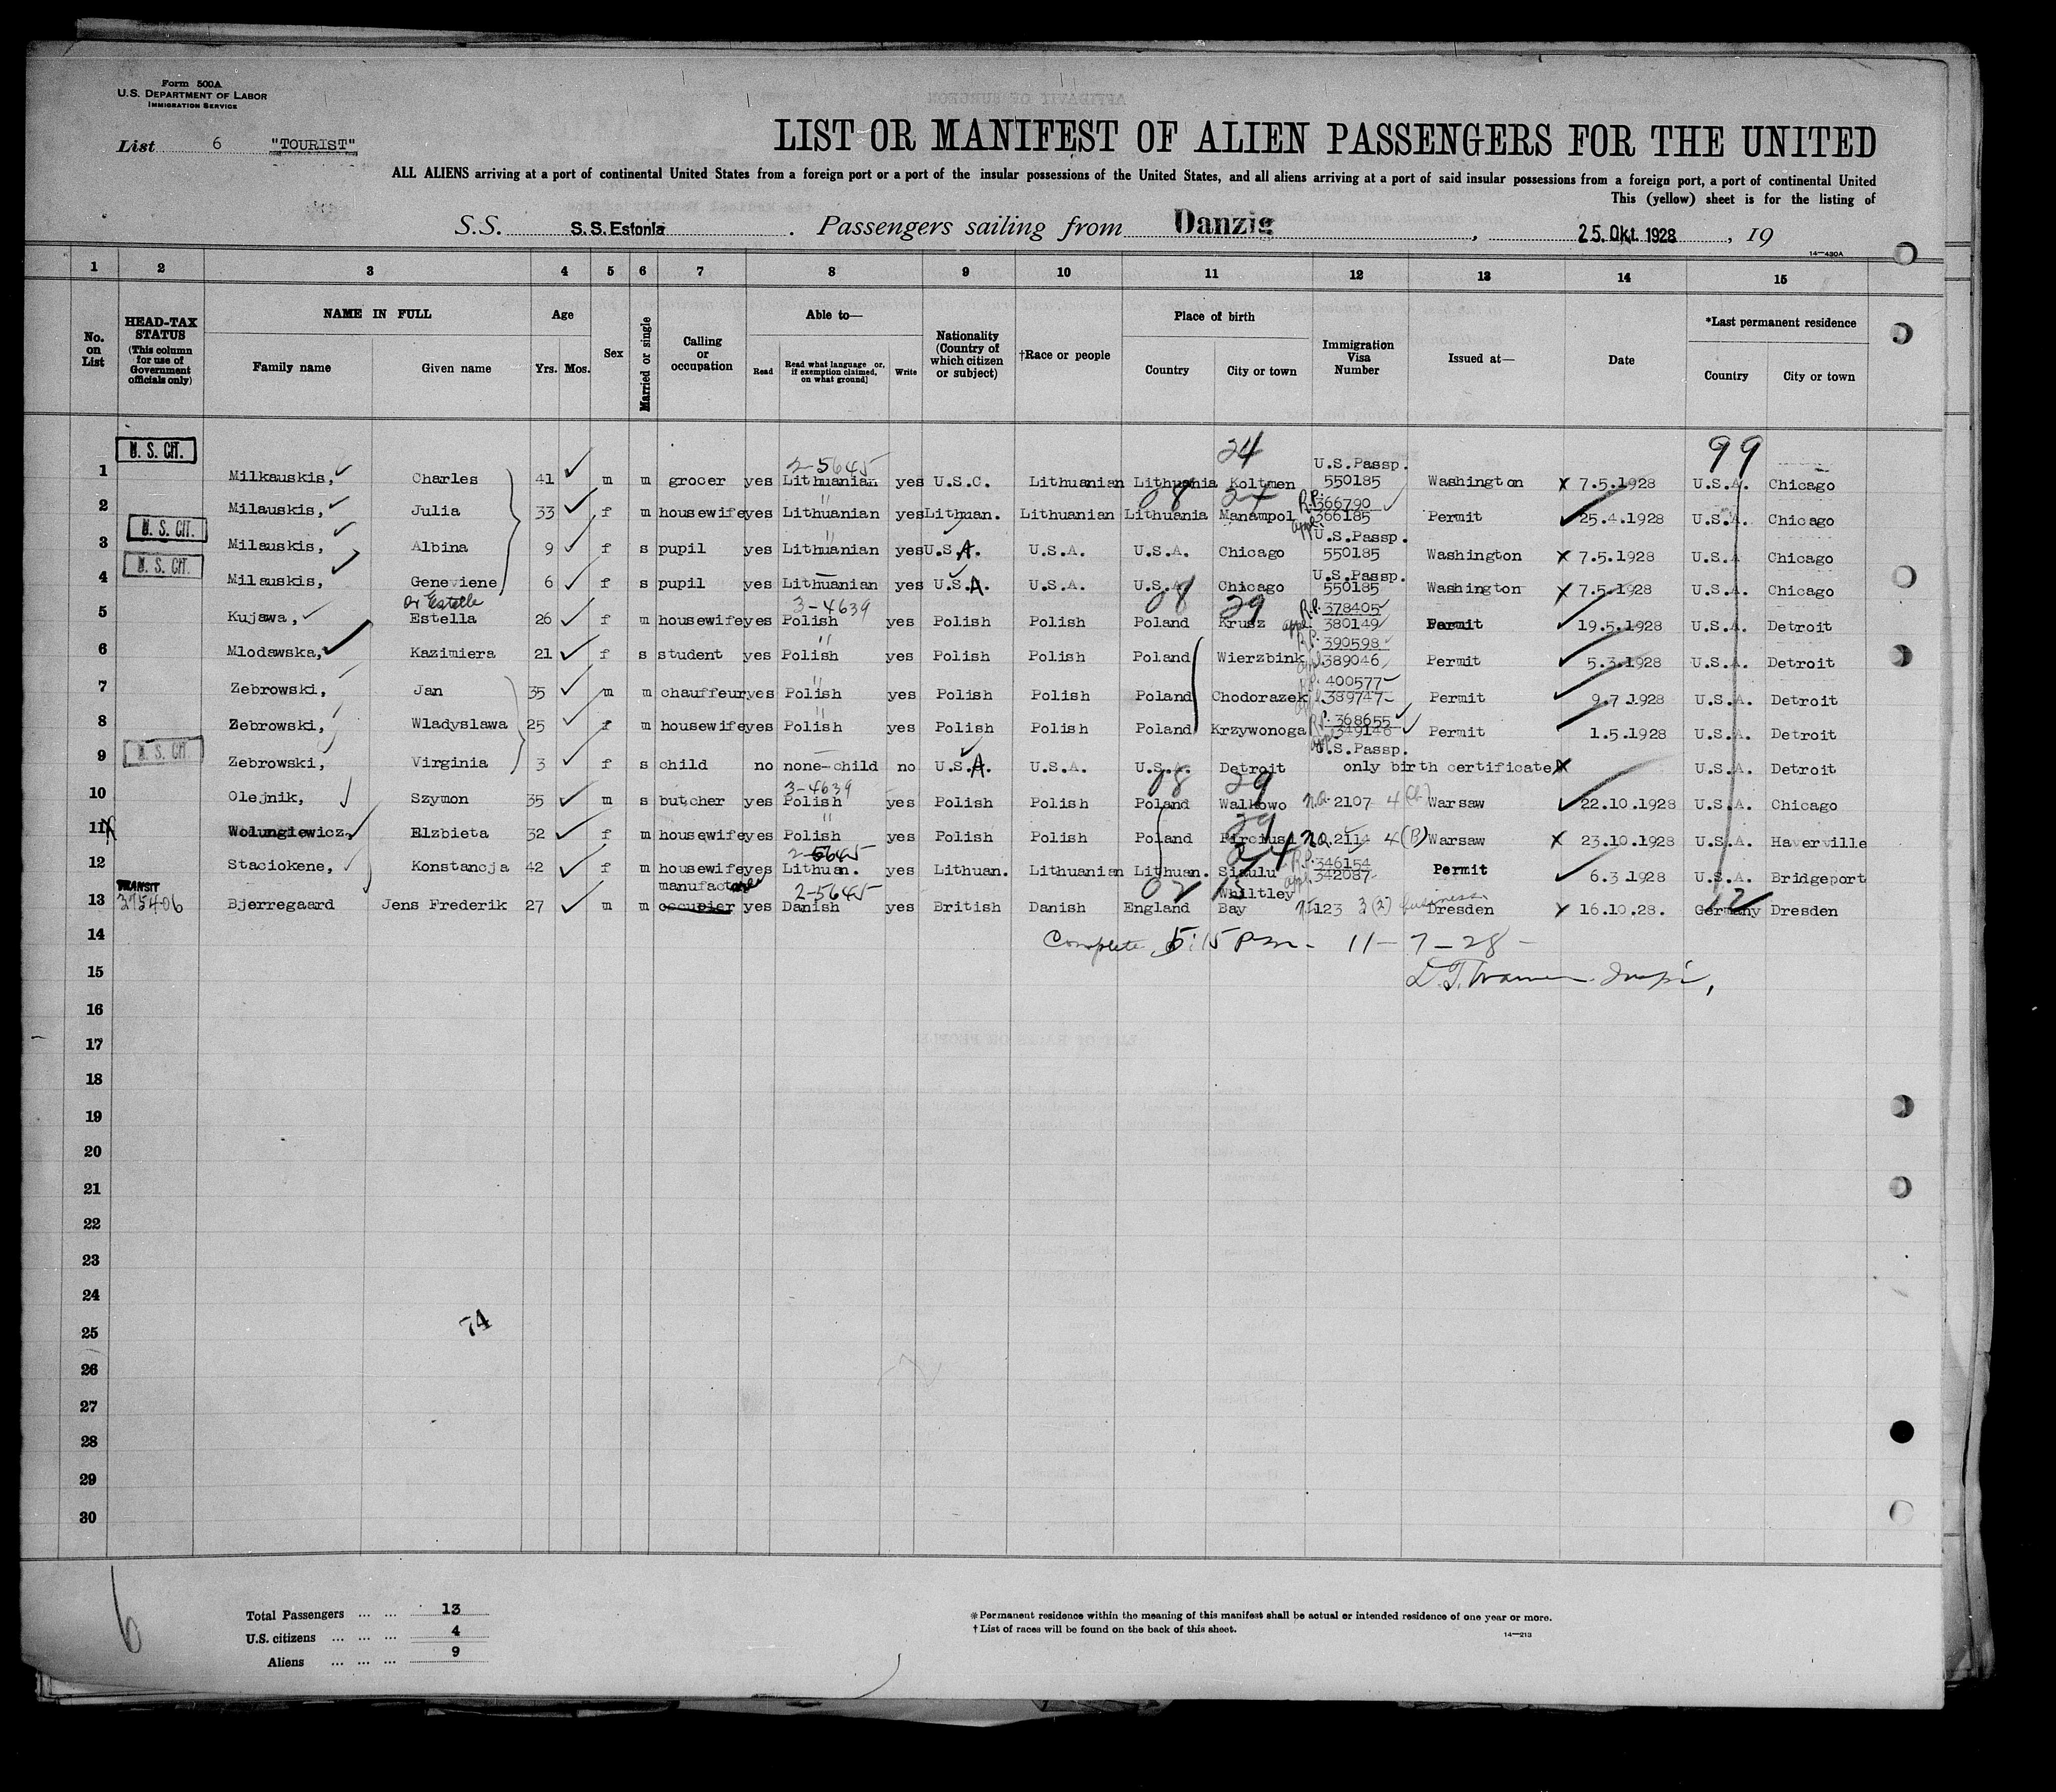 Form 500A
U.S. DEPARTMENT OF LABOR
IMMIGRATION SERVICE
List 6 "TOURIST"
LIST OR MANIFEST OF ALIEN PASSENGERS FOR THE UNITED
ALL ALIENS arriving at a port of continental United States from a foreign port or a port of the insular possessions of the United States, and all aliens arriving at a port of said insular possessions from a foreign port, a port of continental United
This (yellow) sheet is for the listing of
S.S. S.S. Estonia. Passengers sailing from Danzig, 25. Okt. 1928, 19
14—430A
1 2 3 4 5 6 7 8 9 10 11 12 13 14 15
No. on List
HEAD-TAX STATUS (This column for use of Government officials only)
NAME IN FULL
Family name Given name
Age
Yrs. Mos.
Sex
Married or single
Calling or occupation
Able to—
Read Read what language or, if exemption claimed, on what ground) Write
Nationality (Country of which citizen or subject)
†Race or people
Place of birth
Country City or town
Immigration Visa Number
Issued at—
Date
*Last permanent residence
Country City or town
U. S. CIT. 2-5645 24 U.S.Passp. 99
1 Milkauskis, Charles 41 m m grocer yes Lithuanian yes U.S.C. Lithuanian Lithuania Koltmen 550185 Washington X 7.5.1928 U.S.A. Chicago
08 24 R.P. 366790
2 Milauskis, Julia 33 f m housewife yes Lithuanian yes Lithuan. Lithuanian Lithuania Manampol appl. 366185 Permit 25.4.1928 U.S.A. Chicago
U. S. CIT. U.S.Passp.
3 Milauskis, Albina 9 f s pupil yes Lithuanian yes U.S.A. U.S.A. U.S.A. Chicago 550185 Washington X 7.5.1928 U.S.A Chicago
U. S. CIT. U.S.Passp.
4 Milauskis, Geneviene 6 f s pupil yes Lithuanian yes U.S.A. U.S.A. U.S.A. Chicago 550185 Washington X 7.5.1928 U.S.A. Chicago
or Estelle 3-4639 08 29 R.P. 378405
5 Kujawa, Estella 26 f m housewife yes Polish yes Polish Polish Poland Krusz appl. 380149 Permit 19.5.1928 U.S.A. Detroit
R.P. 390598
6 Mlodawska, Kazimiera 21 f s student yes Polish yes Polish Polish Poland Wierzbink appl. 389046 Permit 5.3.1928 U.S.A. Detroit
R.P. 400577
7 Zebrowski, Jan 35 m m chauffeur yes Polish yes Polish Polish Poland Chodorazek appl. 389747 Permit 9.7.1928 U.S.A. Detroit
R.P. 368655
8 Zebrowski, Wladyslawa 25 f m housewife yes Polish yes Polish Polish Poland Krzywonoga appl. 349146 Permit 1.5.1928 U.S.A. Detroit
U. S. CIT. U.S.Passp.
9 Zebrowski, Virginia 3 f s child no none-child no U.S.A. U.S.A. U.S.A. Detroit only birth certificate X U.S.A. Detroit
3-4639 08 29
10 Olejnik, Szymon 35 m s butcher yes Polish yes Polish Polish Poland Walkowo n.q. 2107 4(b) Warsaw 22.10.1928 U.S.A. Chicago
29
11 Wolungiewicz, Elzbieta 32 f m housewife yes Polish yes Polish Polish Poland n.q. 2114 4(B) Warsaw X 23.10.1928 U.S.A. Haverville
2-5645 24 R.P. 346154
12 Staciokene, Konstancja 42 f m housewife yes Lithuan. yes Lithuan. Lithuanian Lithuan. Siaulu appl. 342087 Permit 6.3.1928 U.S.A. Bridgeport
TRANSIT manufacturer 2-5645 02 15 Whiltley 12
13 375406 Bjerregaard Jens Frederik 27 m m occupier yes Danish yes British Danish England Bay 123 3(2) business Dresden X 16.10.28. Germany Dresden
14 Complete 5:15 P.m. - 11-7-28-
15
16
17
18
19
20
21
22
23
24
25 74
26
27
28
29
30
6
Total Passengers ... ... 13
U.S. citizens ... ... ... 4
Aliens ... ... ... 9
*Permanent residence within the meaning of this manifest shall be actual or intended residence of one year or more.
† List of races will be found on the back of this sheet.
14—213